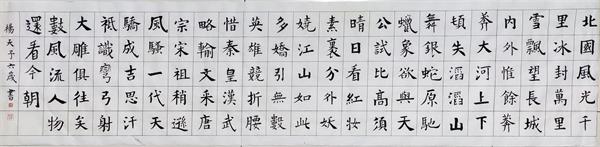 北國風光千
里冰封萬里
雪飄望長城
內外惟餘莽
莽大河上下
頓失滔滔山
舞銀蛇原馳
蠟象欲與天
公試比高須
晴日看紅妝
素裹分外妖
嬈江山如此
多嬌引無數
英雄競折腰
惜秦皇漢武
略輸文采唐
宗宋祖稍遜
風騷一代天
驕成吉思汗
祗識彎弓射
大雕俱往矣
數風流人物
還看今朝
楊天予六歲書